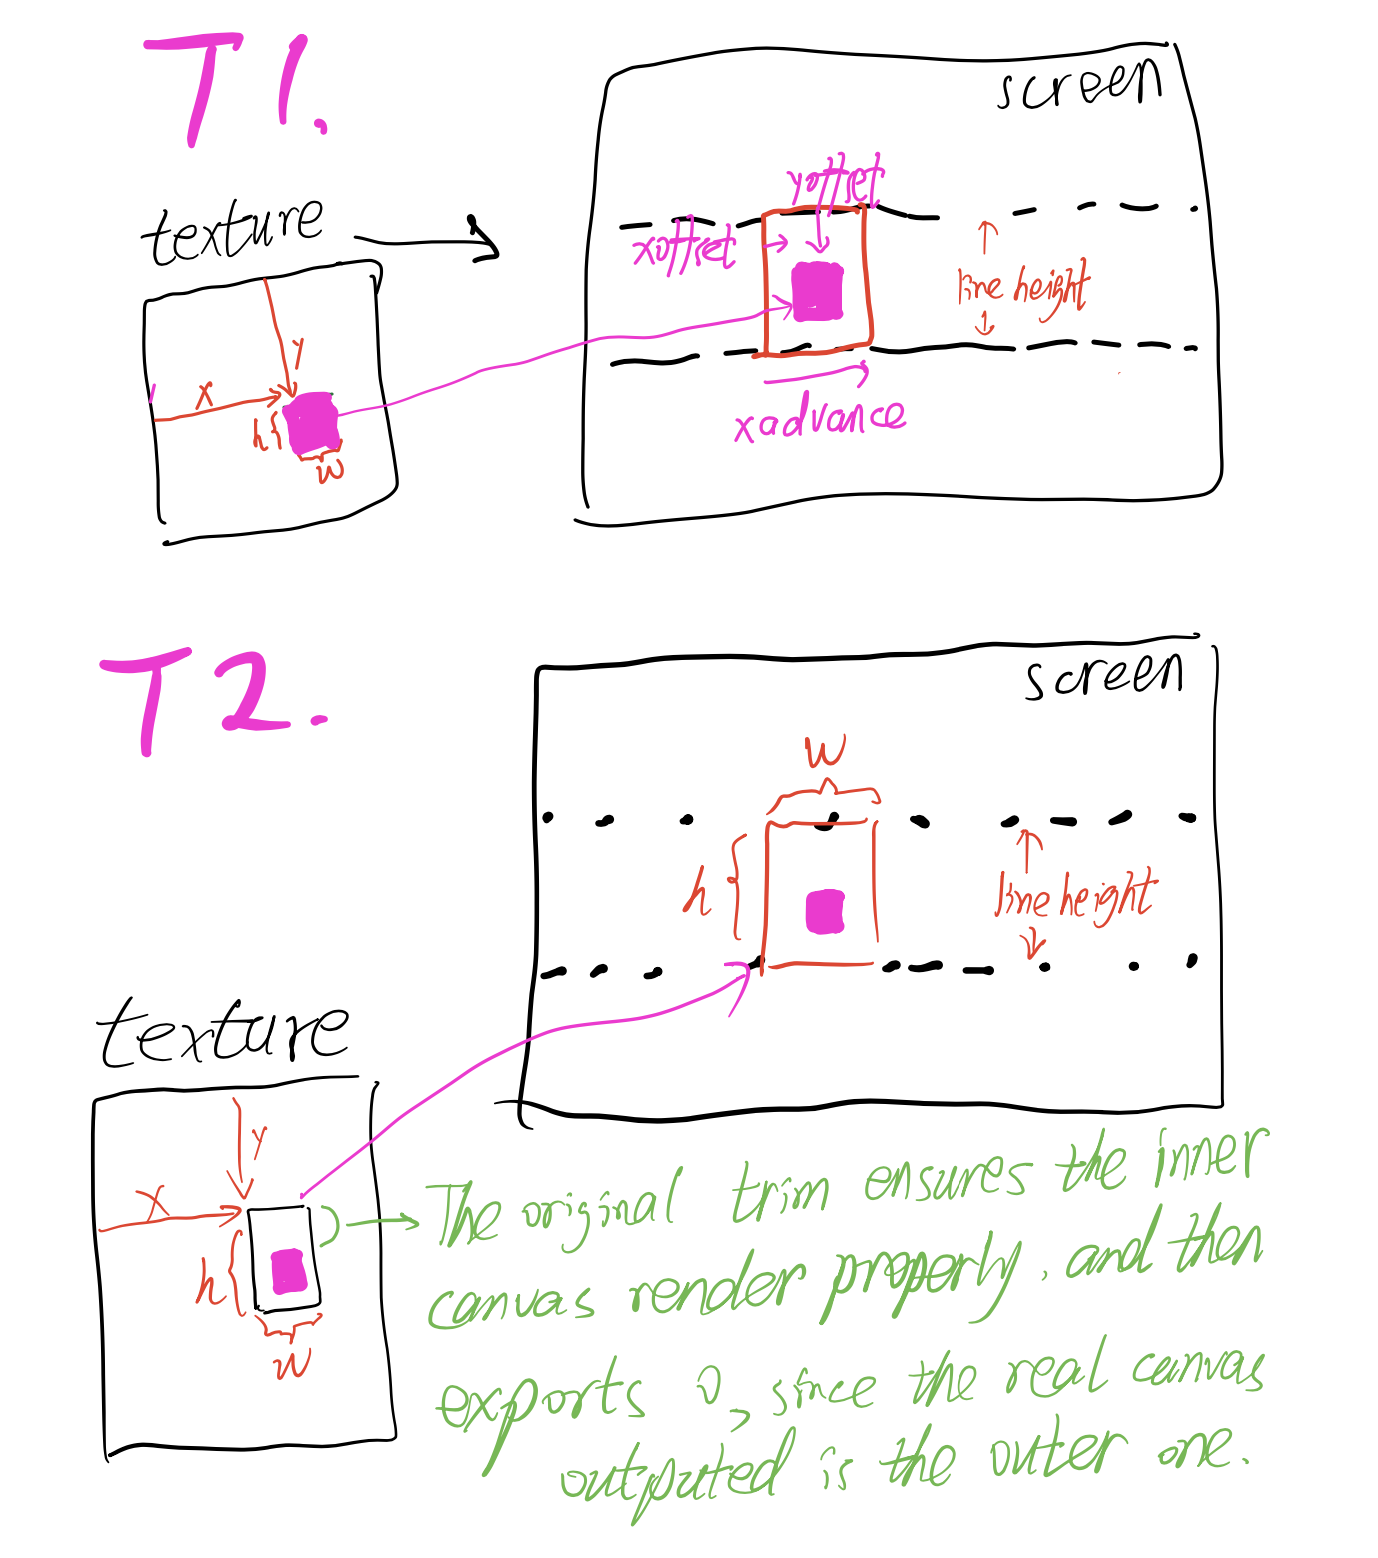 T1.
screen
texture
yoffset
xoffset
line height
x
y
h
w
xadvance
T2.
screen
w
h
line height
texture
y
x
h
w
The original trim ensures the inner
canvas render properly, and then
exports 0, since the real canvas
outputed is the outer one.